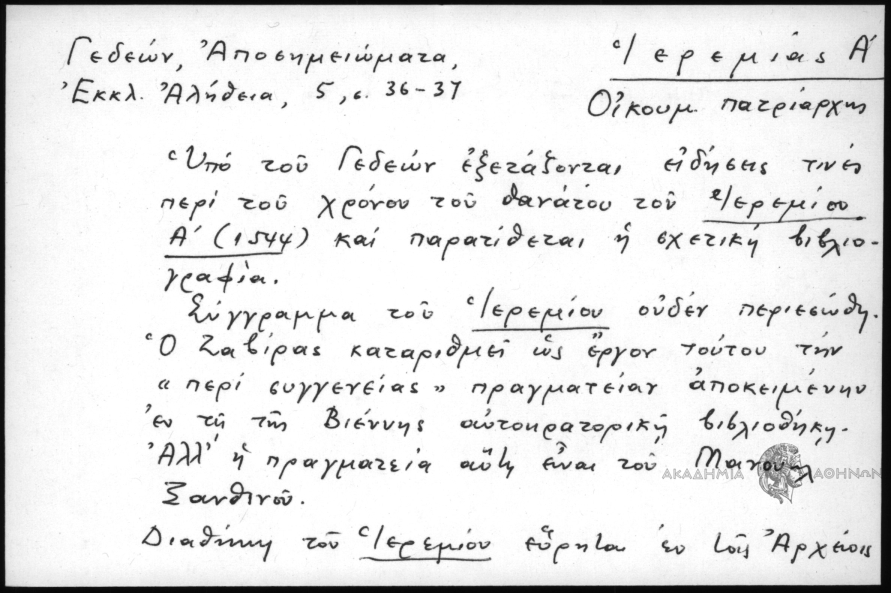 Γεδεών, Ἀποσημειώματα,
Ἐκκλ. Ἀλήθεια, 5, σ. 36-37
Ἱερεμίας Α΄
Οἰκουμ. πατριάρχης
Ὑπό τοῦ Γεδεών ἐξετάζονται εἰδήσεις τινές
περί τοῦ χρόνου τοῦ θανάτου τοῦ Ἱερεμίου
Α΄ (1544) καί παρατίθεται ἡ σχετική βιβλιο-
γραφία.
Σύγγραμμα τοῦ Ἱερεμίου οὐδέν περιεσώθη.
Ὁ Ζαβίρας καταριθμεῖ ὡς ἔργον τούτου τήν
«περί συγγενείας» πραγματείαν ἀποκειμένην
ἐν τῇ τῆς Βιέννης αὐτοκρατορικῇ βιβλιοθήκῃ.
Ἀλλ' ἡ πραγματεία αὕτη εἶναι τοῦ Μανουήλ
Ξανθινοῦ.
Διαθήκη τοῦ Ἱερεμίου εὕρηται ἐν τοῖς Ἀρχείοις
ΑΚΑΔΗΜΙΑ ΑΘΗΝΩΝ